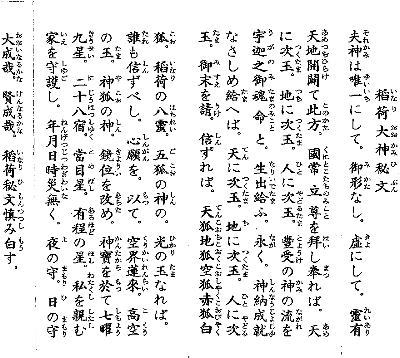 稲荷大神秘文
夫神は唯一にして。御形なし。虚にして。霊有
天地開闢て此方。國常立尊を拝し奉れば。天
に次玉。地に次玉。人に次玉。豊受の神の流を
宇迦之御魂命と。生出給ふ。永く。神納成就
なさしめ給へば。天に次玉。地に次玉。人に次
玉。御末を請。信ずれば。天狐地狐空狐赤狐白
狐。稲荷の八霊。五狐の神の。光の玉なれば。
誰も信ずべし。心願を。以て。空界蓮來。高空
の玉。神狐の神。鏡位を改め。神寶を於て七曜
九星。二十八宿。當目星。有程の星。私を親む
家を守護し。年月日時災無く。夜の守。日の守
大成哉。賢成哉。稲荷秘文慎み白す。